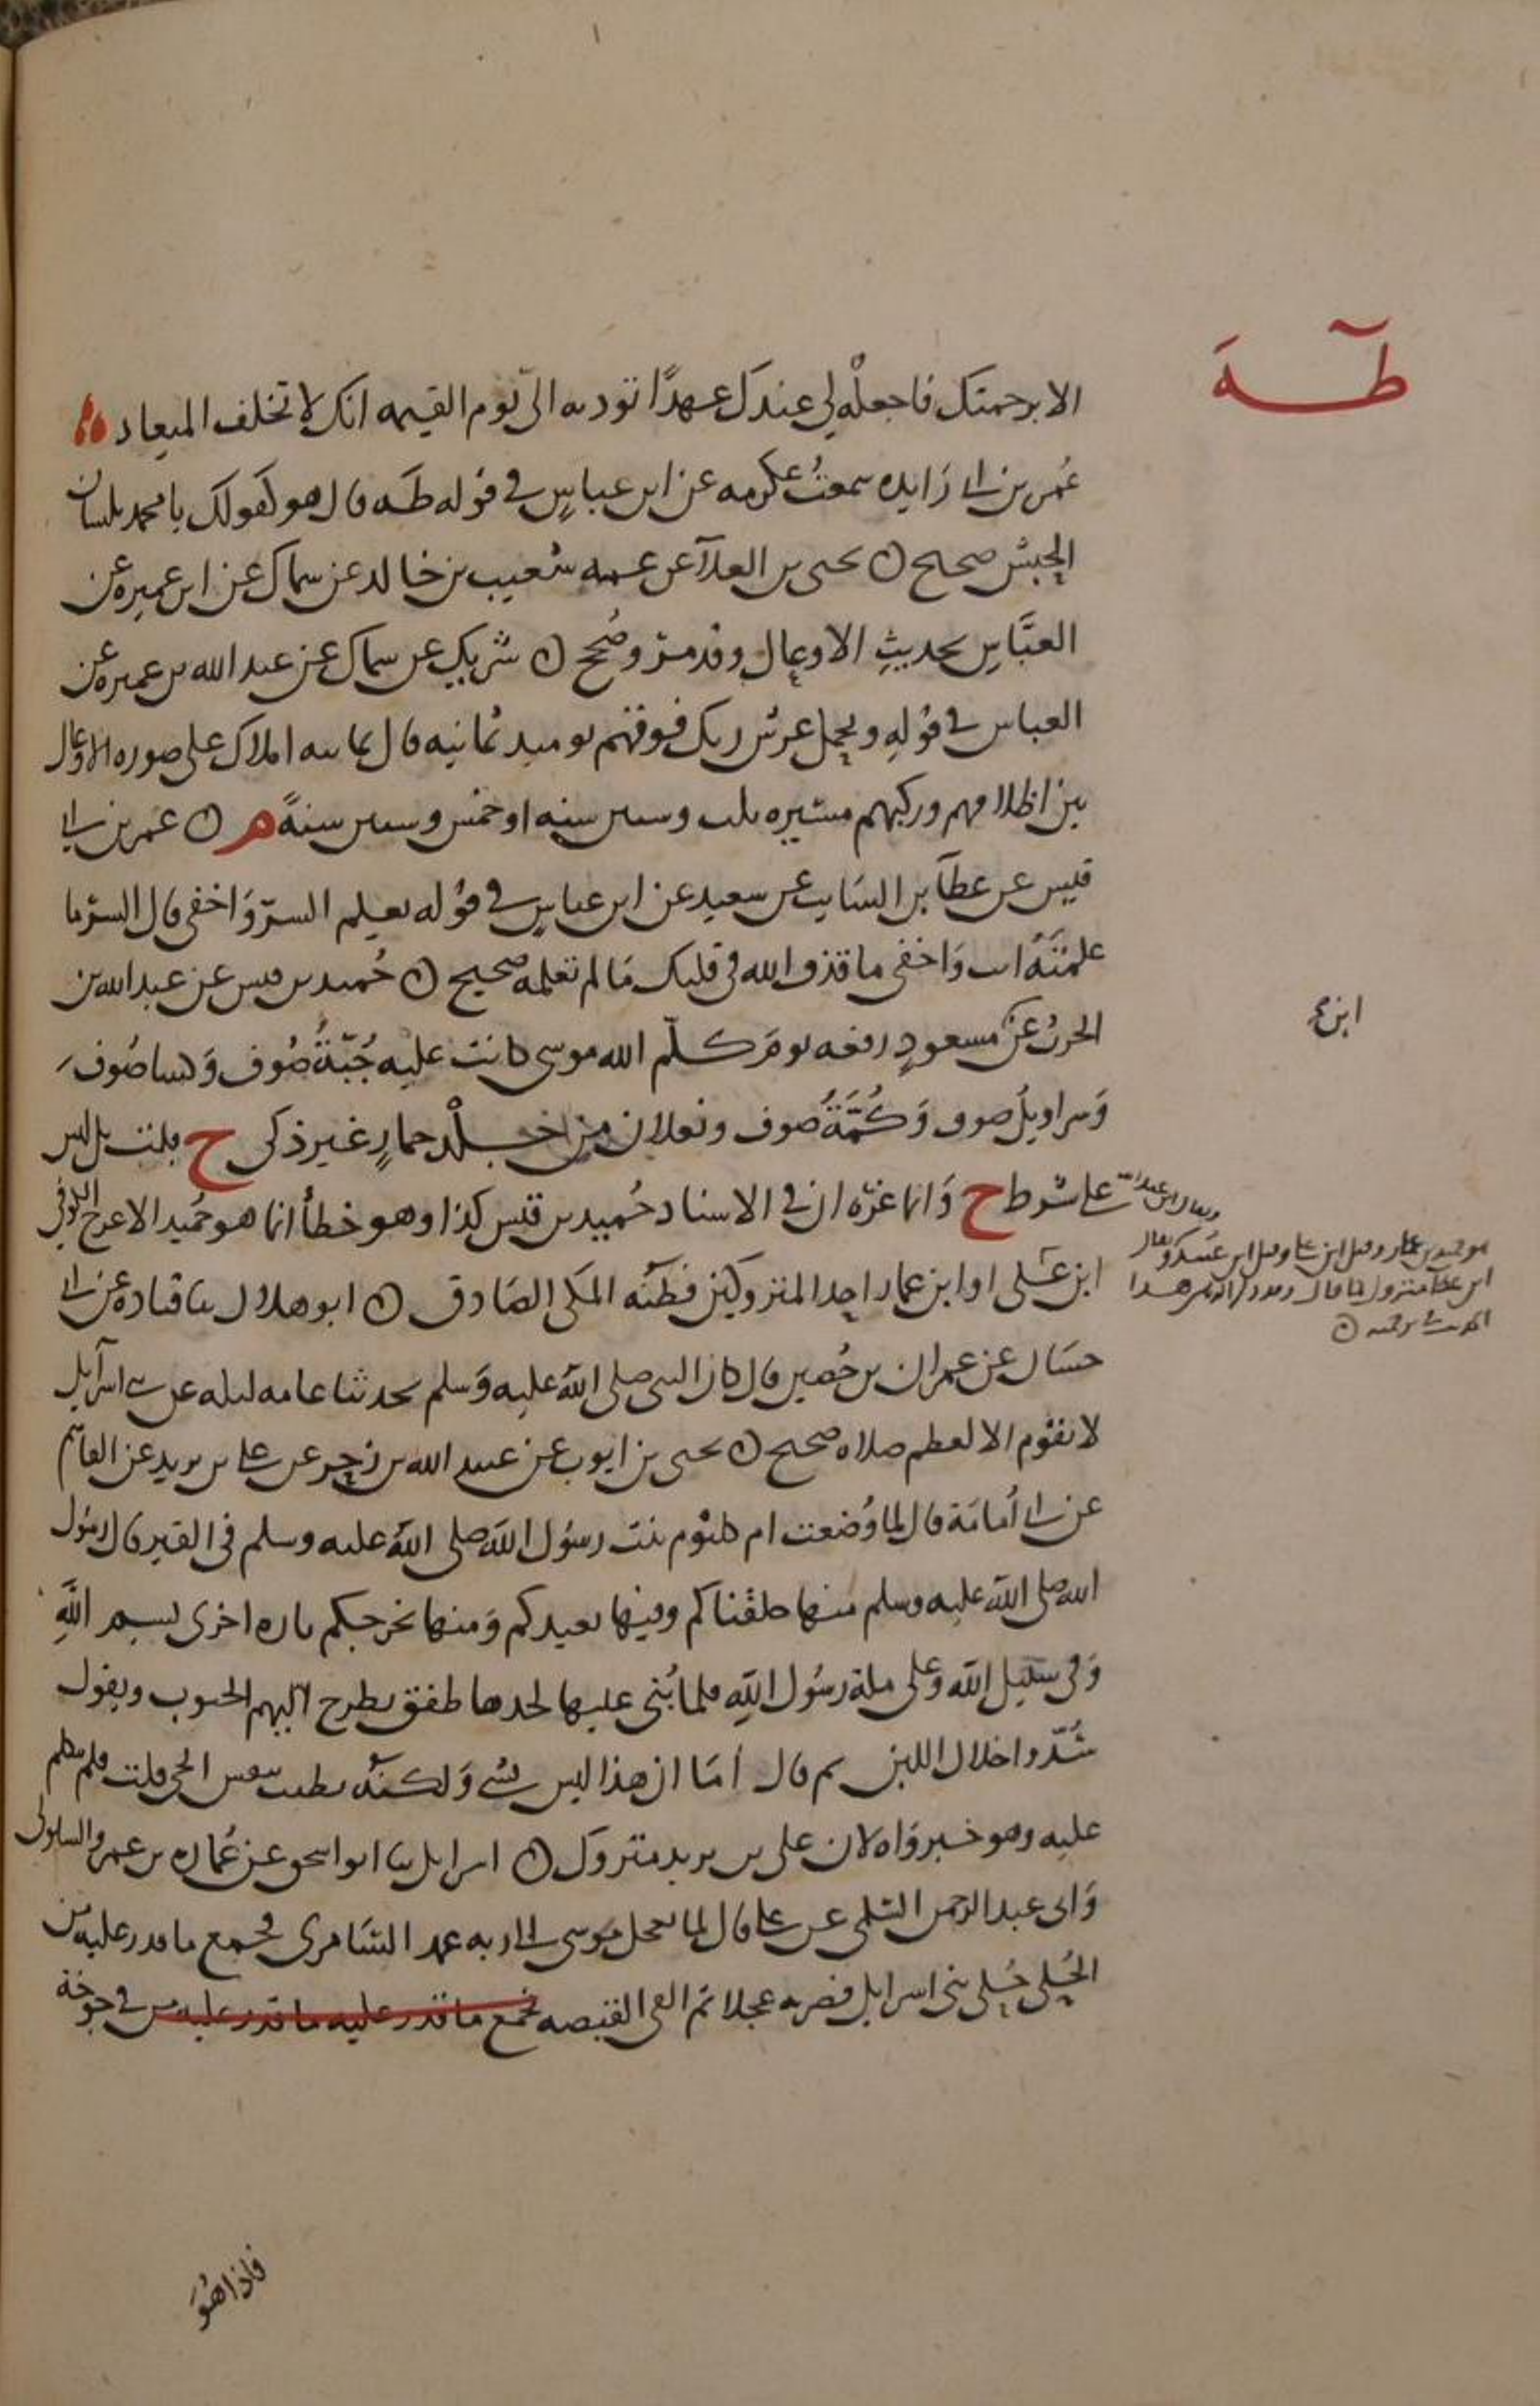 طه
الا برحمتك فاجعله لي عندك عهدًا توديه الى يوم القيمه انك لا تخلف الميعاد
عُمر بن ابي زايده سمعتُ عكرمه عن ابن عباسٍ في قوله طه قال هو كقولك يا محمد بلسان
الحبش صحيح ن يحيى بن العلآ عن عمه شعيب بن خالد عن سماك عن ابن عميره عن
العبَّاسِ بحديثِ الاوعال وقد مرّ وصُحح ن شريك عن سماك عن عبد الله بن عميره عن
العباس في قولهِ ويحمل عرش ربك فوقهم يوميد ثمانيه قال ثمانيه املاك على صوره الاوعال
بين اظلافهم وركبهم مسيره ثلث وستين سنه او خمس وستين سنةً م ن عمر بن ابي
قيس عن عطآ بن السَايب عن سعيد عن ابن عباسٍ في قوله يعلم السرّ وَاخفى قال السرّ ما
علمتَهُ انت وَاخفى ما قذف الله في قلبك مَا لم تعلمه صحيح ن حُميد بن قيس عن عبد الله بن
الحرث عن مسعودٍ رفعه يومَ كلّم الله موسى كانت عليه جُبّةُ صُوف وَكسا صُوف
وَسراويلُ صوف وَكُمَّةُ صوف ونعلان من جلْد حمارٍ غير ذكي ح قلت بل ليس
على شرط ح وَانما غرّه ان في الاسناد حُميد بن قيس كذا وهو خطأ انما هو حُميد الاعرج الكوفي
ابن علي او ابن عمار احد المتروكين فظنّه المكي الصَادق ن ابو هلال ثنا قتاده عن ابي
حسَان عن عمران بن حُصين قال كان النبي صلى الله عليه وَسلم يحدثنا عامه ليله عن بني اسرآيل
لا يقوم الا لعظم صلاه صحيح ن يحيى بن ايوب عن عبيد الله بن زحر عن علي بن يزيد عن القاسم
عن ابي أُمَامَة قال لما وُضعت ام كلثوم بنت رسُول الله صلى الله عليه وسلم في القبر قال رسُول
الله صلى الله عليه وسلم منها خلقناكم وفيها نعيدكم وَمنها نخرجكم تاره اخرى بسم اللهِ
وَفي سبيل الله وعلى ملة رسُول اللهِ فلما بُني عليها لحدها طفق يطرح اليهم الجبوب ويقول
شُدّوا خلال اللبن ثم قال أمَا ان هذا ليس بشي وَلكنّه يطيب بنفس الحي قلت فلم يتكلم
عليه وهو خبر وَاه لان علي بن يزيد متروك ن اسرايل ثنا ابو اسحق عن عُماره بن عمرو السلولي
وَابي عبد الرحمن السُلمي عن علي قال لما تعجل موسى الى ربه عمد السَامري فجمع ما قدر عليه من
الحُلي حُلي بني اسرايل فضربه عجلا ثم القى القبضه فجمع ما قدر عليه ما قدر عليه من في جوفه
ابن
فاذا هُوَ